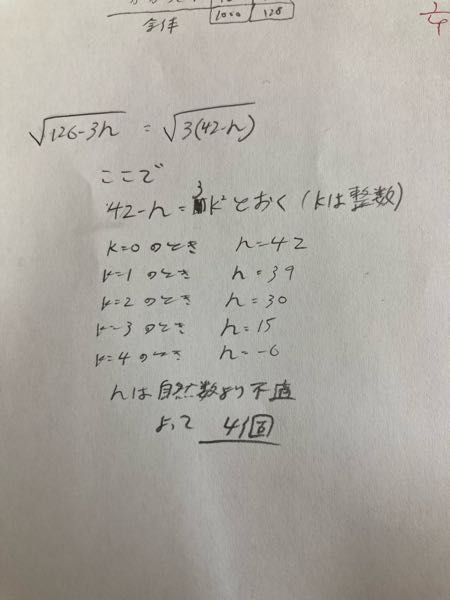 全体 1000 128
√126-3n = √3(42-n)
ここで
42-n = 3k² とおく (kは整数)
k=0 のとき n=42
k=1 のとき n=39
k=2 のとき n=30
k=3 のとき n=15
k=4 のとき n=-6
nは自然数より不適
よって 4個